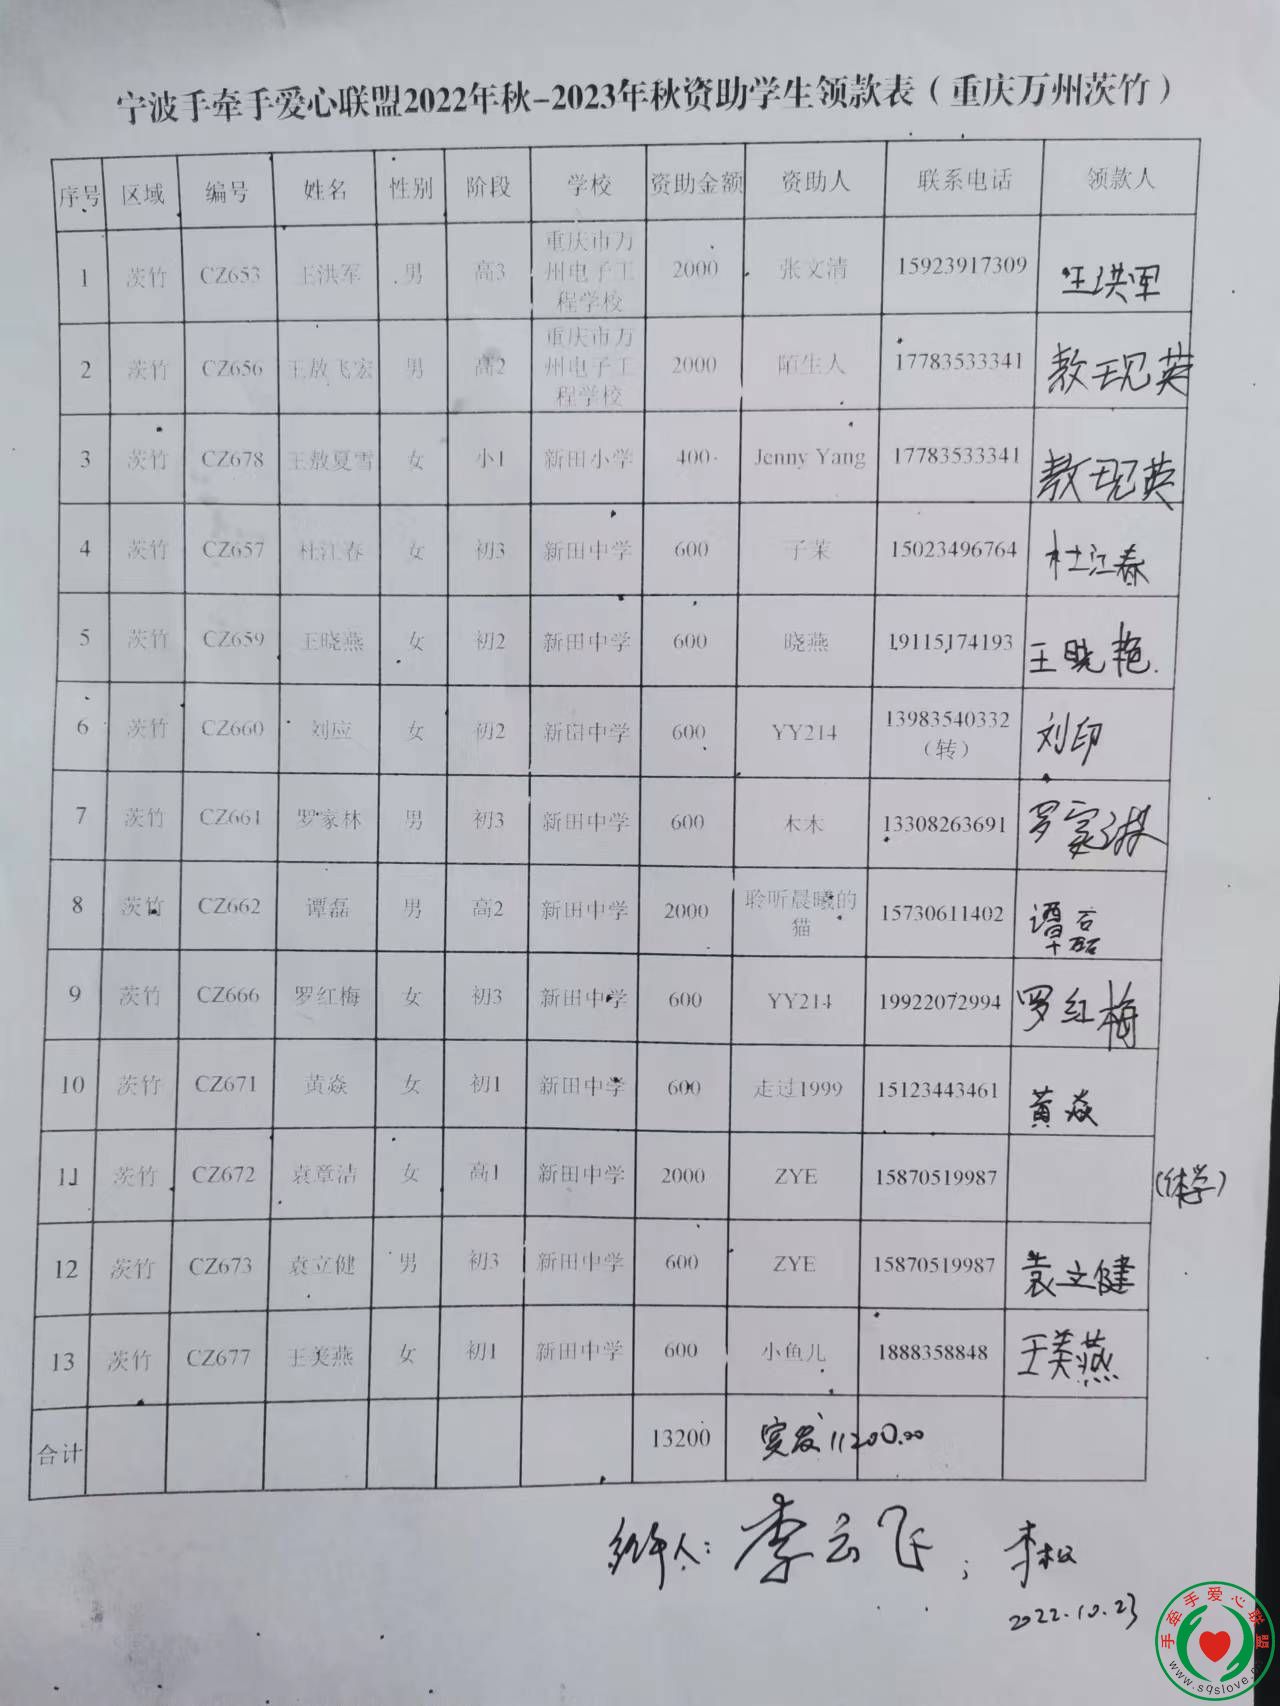 宁波手牵手爱心联盟2022年秋-2023年秋资助学生领款表（重庆万州茨竹）
序号 区域 编号 姓名 性别 阶段 学校 资助金额 资助人 联系电话 领款人
1 茨竹 CZ653 王洪军 男 高3 重庆市万州电子工程学校 2000 张文清 15923917309 王洪军
2 茨竹 CZ656 王敖飞宏 男 高2 重庆市万州电子工程学校 2000 陌生人 17783533341
3 茨竹 CZ678 王敖夏雪 女 小1 新田小学 400 Jenny Yang 17783533341
4 茨竹 CZ657 杜江春 女 初3 新田中学 600 子茉 15023496764 杜江春
5 茨竹 CZ659 王晓燕 女 初2 新田中学 600 晓燕 19115174193 王晓艳.
6 茨竹 CZ660 刘应 女 初2 新田中学 600 YY214 13983540332（转） 刘印
7 茨竹 CZ661 罗家林 男 初3 新田中学 600 木木 13308263691 罗家琳
8 茨竹 CZ662 谭磊 男 高2 新田中学 2000 聆听晨曦的猫 15730611402 谭磊
9 茨竹 CZ666 罗红梅 女 初3 新田中学 600 YY214 19922072994 罗红梅
10 茨竹 CZ671 黄焱 女 初1 新田中学 600 走过1999 15123443461 黄焱
11 茨竹 CZ672 袁章洁 女 高1 新田中学 2000 ZYE 15870519987 (休学)
12 茨竹 CZ673 袁立健 男 初3 新田中学 600 ZYE 15870519987 袁立健
13 茨竹 CZ677 王美燕 女 初1 新田中学 600 小鱼儿 1888358848 王美燕
合计 13200 实发11200.00
经办人: 李云飞;
2022.10.23
手牵手爱心联盟